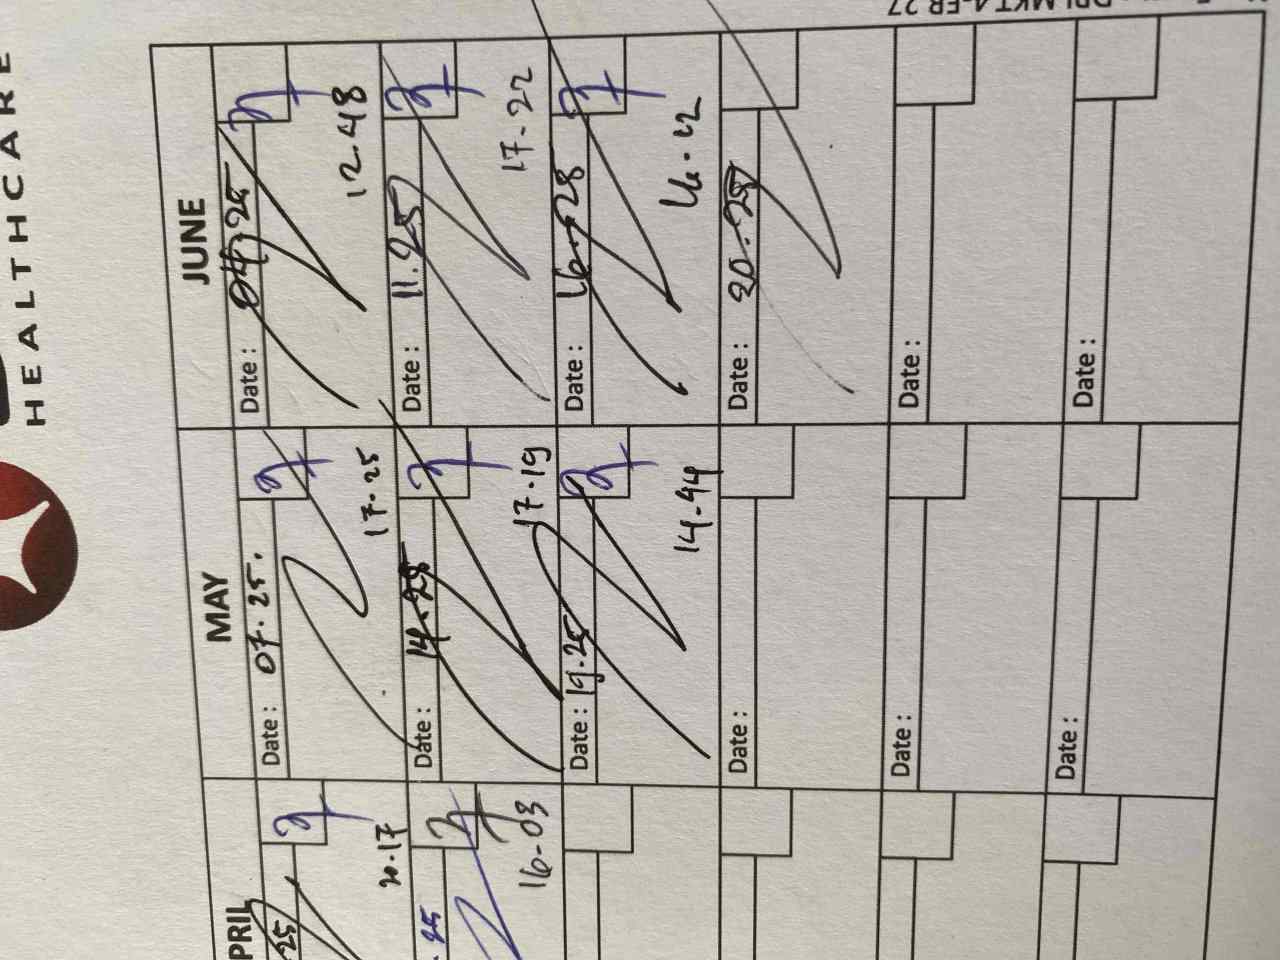 HEALTHCARE
PRIL
25
20.17
25
16-03
MAY
Date : 07.25.
17-25
Date : 14.25
17.19
Date : 19.25
14-44
Date :
Date :
Date :
JUNE
Date : 04.25
12.48
Date : 11.25
17-22
Date : 16.25
16.12
Date : 20.25
Date :
Date :